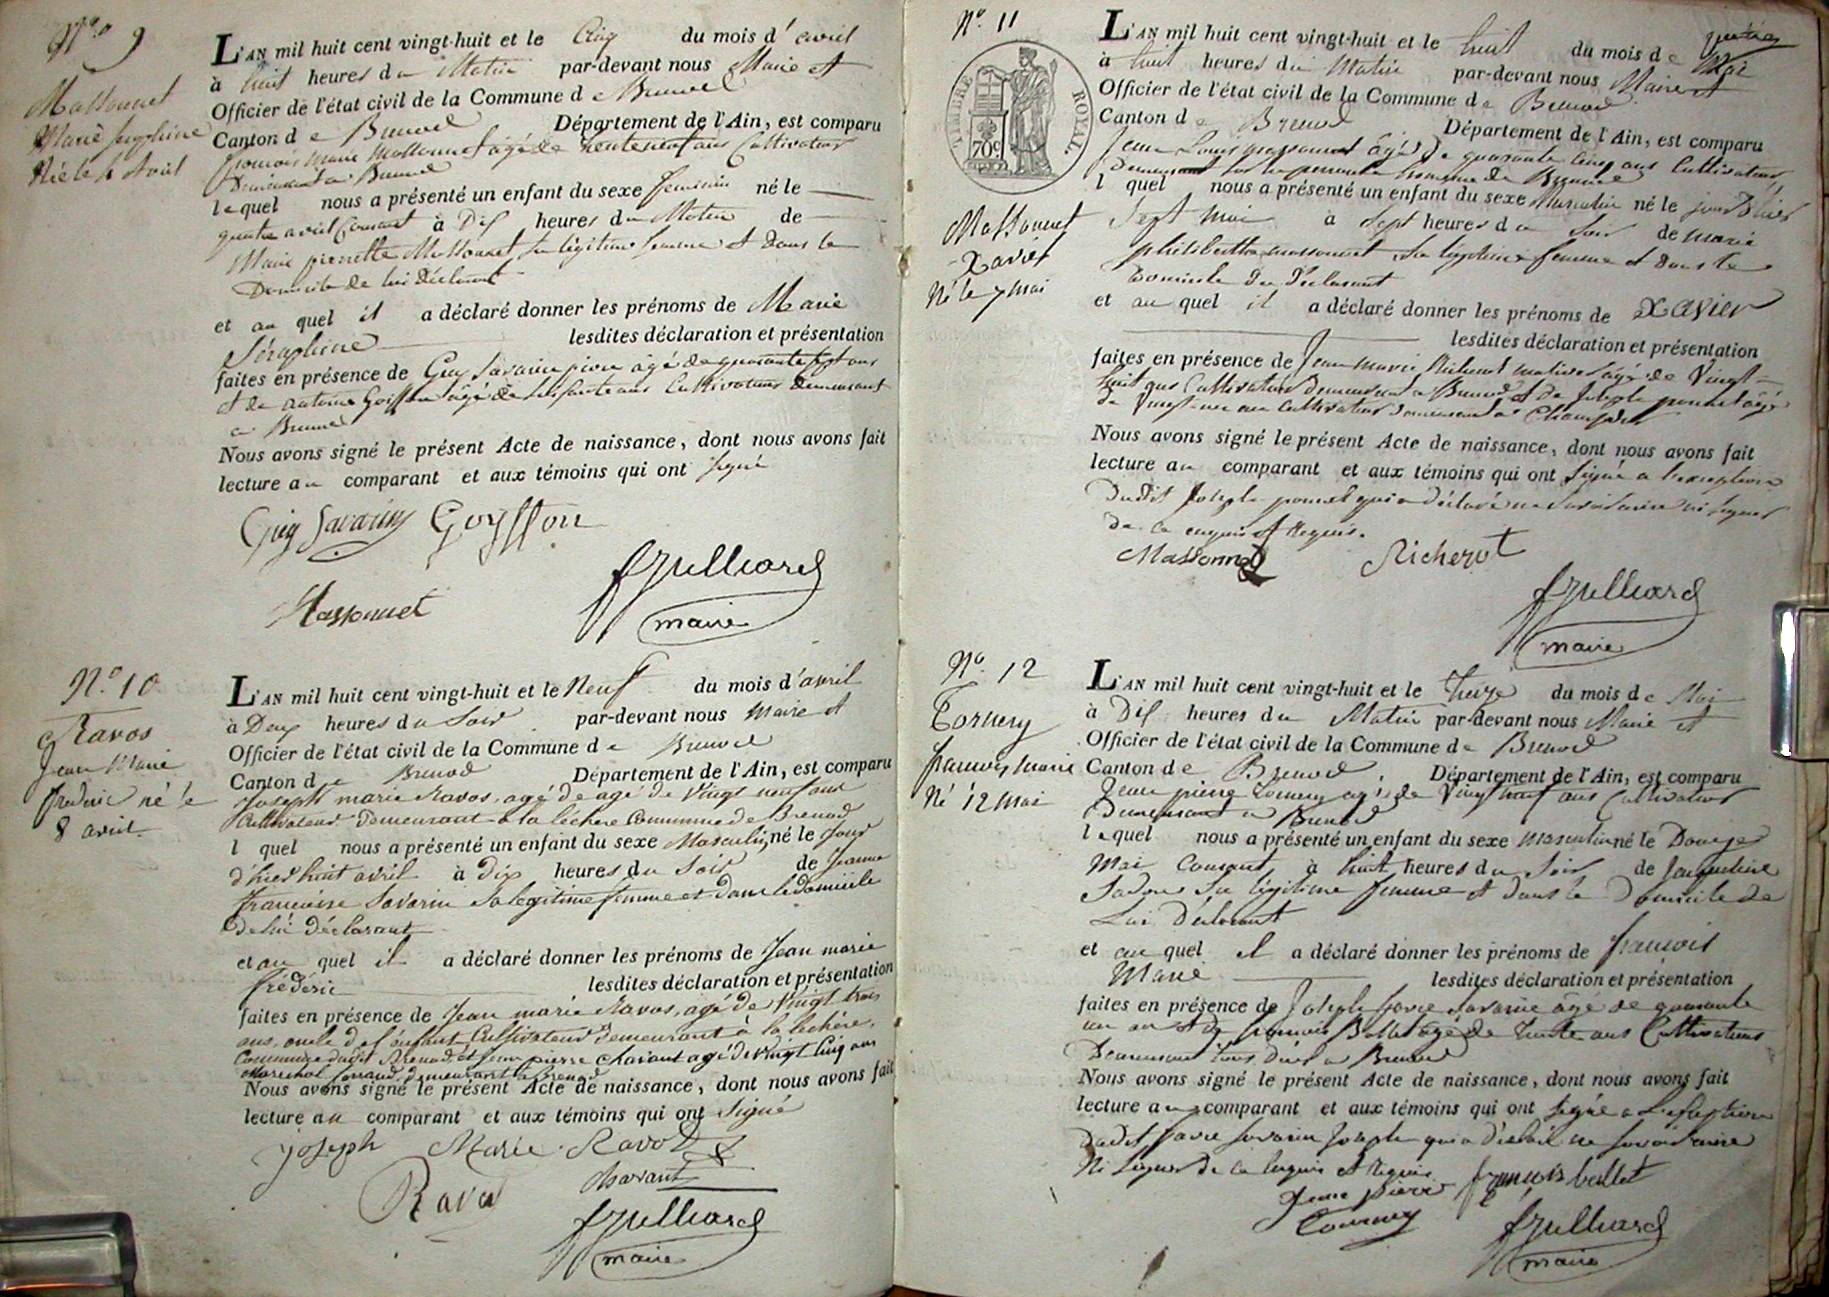 N.o 9
Massonnet
Marie Séraphine
Née le 4 Avril
L'AN mil huit cent vingt-huit et le Cinq du mois d'avril
à huit heures du Matin par-devant nous Maire et
Officier de l'état civil de la Commune de Brenod
Canton de Brenod Département de l'Ain, est comparu
françois Marie Massonnet âgé de trente neuf ans Cultivateur
Demeurant a Brenod
lequel nous a présenté un enfant du sexe feminin né le
quatre avril Courant à Dix heures du Matin de
Marie pierrette Massonnet sa légitime femme et Dans le
Domicile de lui Déclarant
et au quel il a déclaré donner les prénoms de Marie
Séraphine lesdites déclaration et présentation
faites en présence de Guy Savarin pion âgé de quarante sept ans
et de antoine Goiffon âgé de soixante ans Cultivateurs demeurant
a Brenod
Nous avons signé le présent Acte de naissance, dont nous avons fait
lecture au comparant et aux témoins qui ont signé
Guy Savarin Goyffon
Massonnet
f Julliard
maire
N.o 10
Ravos
Jean Marie
frederic né le
8 avril
L'AN mil huit cent vingt-huit et le Neuf du mois d'avril
à Deux heures du Soir par-devant nous Maire et
Officier de l'état civil de la Commune de Brenod
Canton de Brenod Département de l'Ain, est comparu
Joseph marie Ravos, agé de agé de Vingt neuf ans
Cultivateur demeurant à la léchere Commune de Brenod
l quel nous a présenté un enfant du sexe Masculin, né le Jour
d'hier huit avril à Dix heures du Soir de Jeanne
françoise Savarin Sa legitime femme et dans le domicile
de lui déclarant
et au quel il a déclaré donner les prénoms de Jean marie
frédéric lesdites déclaration et présentation
faites en présence de Jean marie Ravos, agé de Vingt trois
ans, oncle de l'enfant Cultivateur demeurant à la lechére,
Commune dudit Brenod et Jean pierre Chavant agé de Vingt Cinq ans
Marechal ferrand, demeurant a Brenod
Nous avons signé le présent Acte de naissance, dont nous avons fait
lecture au comparant et aux témoins qui ont signé
joseph Marie Ravot
Chavant
Ravot
f Julliard
maire
N.o 11
TIMBRE ROYAL.
70c
Massonnet
Xavier
Né le 7 mai
L'AN mil huit cent vingt-huit et le huit du mois de Mai
à huit heures du Matin par-devant nous Maire et
Officier de l'état civil de la Commune de Brenod
Canton de Brenod Département de l'Ain, est comparu
Jean Louis massonnet âgé de quarante cinq ans Cultivateur
Demeurant sur la commune de Brenod
l quel nous a présenté un enfant du sexe Masculin né le jour d'hier
Sept Mai à Sept heures du Soir de marie
philiberthe massonnet Sa légitime femme et Dans le
Domicile du Déclarant
et au quel il a déclaré donner les prénoms de Xavier
lesdites déclaration et présentation
faites en présence de Jean marie Richerot âgé de Vingt
huit ans Cultivateur Demeurant a Brenod et de Joseph ponnet âgé
de Vingt ans Cultivateur demeurant a Champdor
Nous avons signé le présent Acte de naissance, dont nous avons fait
lecture au comparant et aux témoins qui ont signé a l'exception
Dudit Joseph ponnet qui a déclaré ne savoir écrire ni signer
de ce enquis et Requis.
Massonnet Richerot
f Julliard
maire
N.o 12
Tornery
françois marie
Né 12 Mai
L'AN mil huit cent vingt-huit et le Treize du mois de Mai
à Dix heures du Matin par-devant nous Maire et
Officier de l'état civil de la Commune de Brenod
Canton de Brenod Département de l'Ain, est comparu
Jean pierre Tornery agé de Vingt neuf ans Cultivateur
Demeurant a Brenod
lequel nous a présenté un enfant du sexe masculin né le Douze
Mai Courant à huit heures du Soir de Jacqueline
Sa légitime femme et dans le Domicile de
Lui Déclarant
et au quel il a déclaré donner les prénoms de françois
Marie lesdites déclaration et présentation
faites en présence de Joseph Savarin âgé de quarante
un an et de françois Ballet âgé de Trente ans Cultivateurs
Demeurant tous deux a Brenod
Nous avons signé le présent Acte de naissance, dont nous avons fait
lecture au comparant et aux témoins qui ont signé a L'exception
Dudit Savarin Joseph qui a déclaré ne savoir écrire
Ni signer de ce Enquis et Requis
Jean pierre françois ballet
Tournery
f Julliard
maire